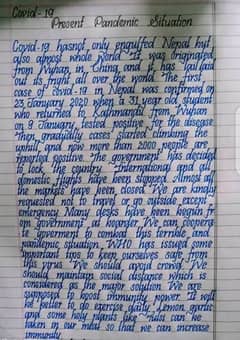 Covid-19
Present Pandemic Situation
Covid-19 hasnot only engulfed Nepal but
also almost whole World. It was originated
from Wuhan in China, and it has spread
out its fright all over the world. The first
case of Covid-19 in Nepal was confirmed on
23 January 2020 when a 31 year old student
who returned to Kathmandu from Wuhan
on 9 January, tested positive for the disease
then, gradually cases started climbing the
uphill, and now more than 2000 people are
reported positive. The government has decided
to lock the country. International and all
domestic flights have been stopped. Almost all
the markets have been closed. We are kindly
requested not to travel or go outside except
emergency. Many desks have been
government at border. We can cooperate
government to combat this terrible and
pandemic situation. WHO has issued some
important tips to keep ourselves safe from
this virus. We should avoid crowd. We
should maintain social distance which is
considered as the major solution. We are
supposed to boost immunity power. It will
be better to do exercise daily. Lemon, garlic
and some holy plant like Tulsi can be
taken in our meal so that we can increase
immunity.